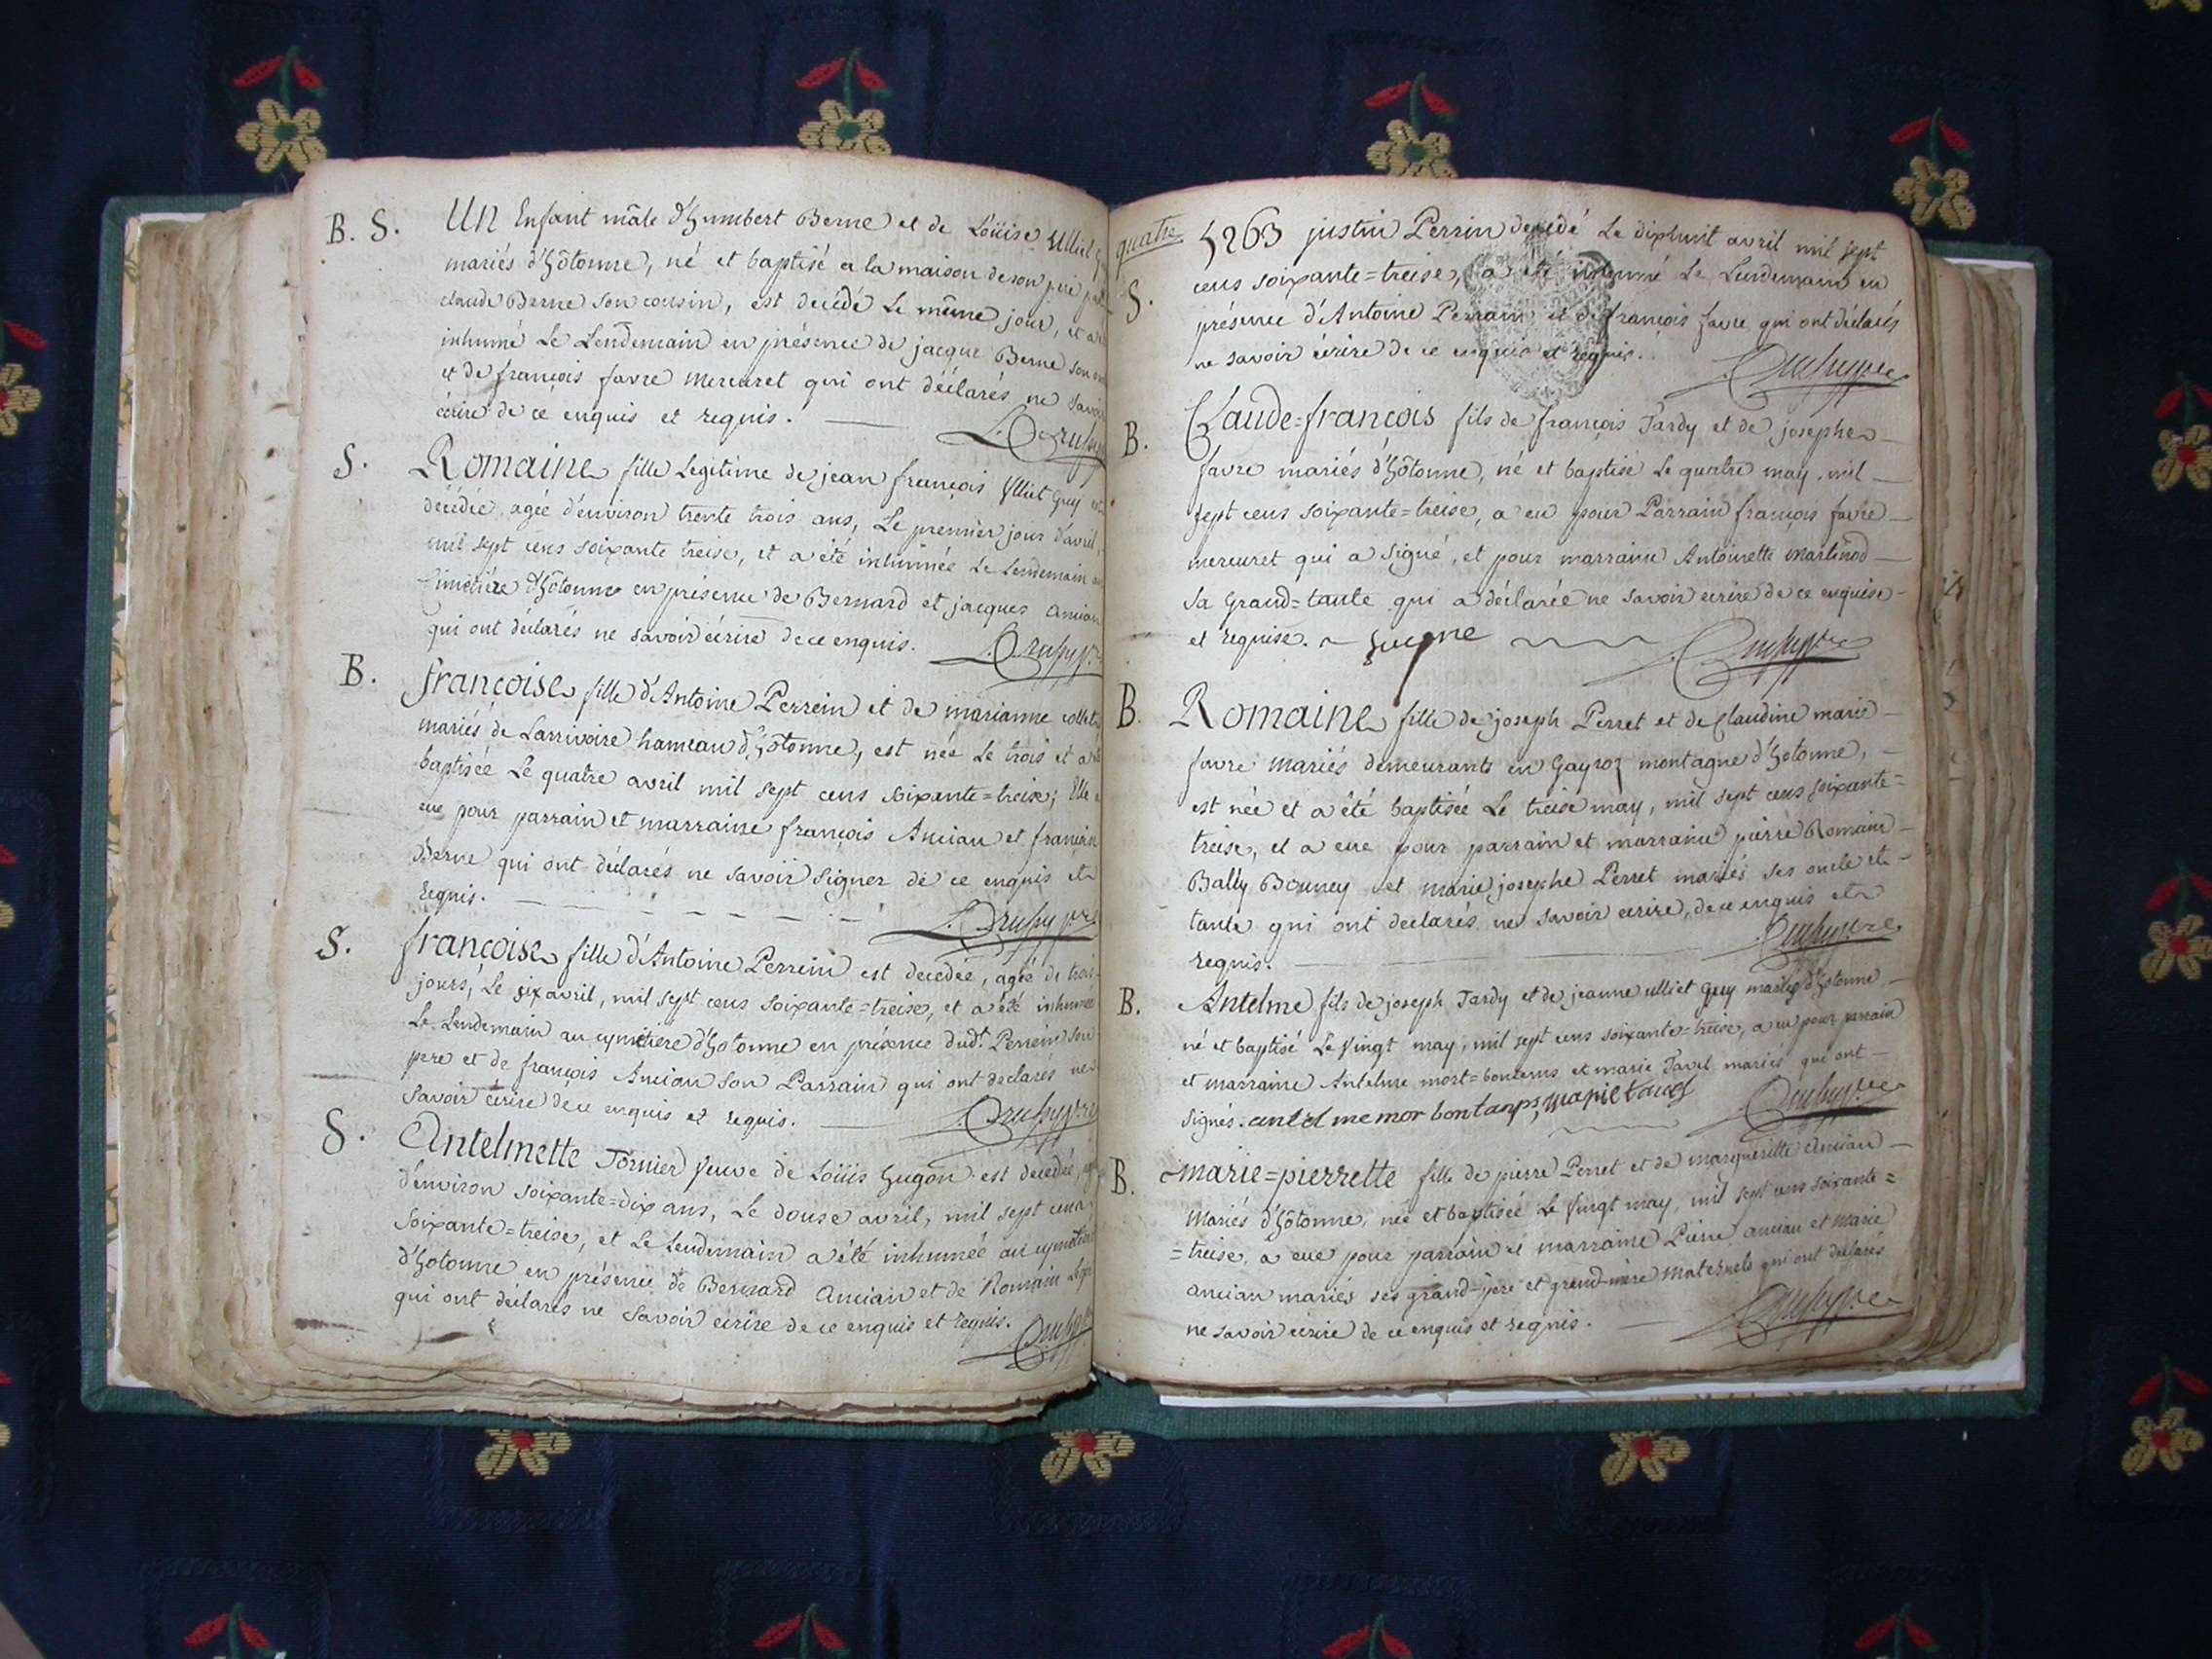 B. S. Un Enfant mâle d'humbert Berne et de Loüise Ulliet
mariés d'hôtonne, né et baptisé a la maison de son pere
claude Berne son cousin, est decédé Le même jour, et a
inhumé Le Lendemain en présence de jacque Berne son
et de françois favre Mercuret qui ont déclarés ne savoir
écrire de ce enquis et requis.
S. Romaine fille Legitime de jean françois Ulliet Guy
décédée agée d'environ trente trois ans, Le premier jour d'avril,
mil sept cens soixante treise, et a été inhumée Le Lendemain au
Cimetière d'hôtonne en présence de Bernard et jacques Ancian
qui ont déclarés ne savoir écrire de ce enquis.
B. françoise fille d'Antoine Perrein et de marianne
mariés de Larrivoire hameau d'hôtonne, est née Le trois et a
baptisée Le quatre avril mil sept cens soixante=treise; Elle
eue pour parrain et marraine françois Ancian et
Berne qui ont déclarés ne savoir signer de ce enquis et
requis.
S. françoise fille d'Antoine Perrein est decedée, agée de trois
jours, Le six avril, mil sept cens soixante=treise, et a été inhumée
Le Lendemain au cymetiere d'hotonne en présence dudt. Perrein son
pere et de françois Ancian son Parrain qui ont declarés ne
savoir écrire de ce enquis et requis.
S. Antelmette Tornier veuve de Loüis Gugon est decedée,
d'environ soixante=dix ans, Le douse avril, mil sept cens
soixante=treise, et Le Lendemain a été inhumée au cymetiere
d'hotonne en présence de Bernard Ancian et de Romain
qui ont déclarés ne savoir écrire de ce enquis et requis.
quatre 5263 justin Perrin decedé Le dixhuit avril mil sept
S. cens soixante=treise, a été inhumé Le Lendemain en
présence d'Antoine Perrain et de françois favre qui ont déclarés
ne savoir écrire de ce enquis et requis.
B. Claude=françois fils de françois Tardy et de josephe
favre mariés d'hôtonne, né et baptisé Le quatre may, mil
sept cens soixante=treise, a eu pour Parrain françois favre
mercuret qui a signé, et pour marraine Antoinette Martinod
sa Grand=tante qui a déclarée ne savoir ecrire de ce enquise
et requise.
B. Romaine fille de joseph Perret et de Claudine marie
favre mariés demeurants en Gayroz montagne d'hotonne,
est née et a été baptisée Le treise may, mil sept cens soixante=
treise, et a eue pour parrain et marraine pierre Romain
Bally Bouney et marie josephe Perret mariés ses oncle et
tante qui ont declarés ne savoir ecrire, de ce enquis et
requis.
B. Antelme fils de joseph Tardy et de jeanne ulliet Guy mariés d'hotonne
né et baptisé Le vingt may, mil sept cens soixante=treise, a eu pour parrain
et marraine Antelme mort=bontems et marie Tavel mariés qui ont
signés. antel me mor bontanps, marie tavel
B. marie=pierrette fille de pierre Perret et de margueritte Ancian
Mariés d'hôtonne, née et baptisée Le vingt may, mil sept cens soixante=
=treise, a eue pour parrain et marraine Pierre ancian et Marie
ancian mariés ses grand=père et grand-mère maternels qui ont declarés
ne savoir écrire de ce enquis et requis.